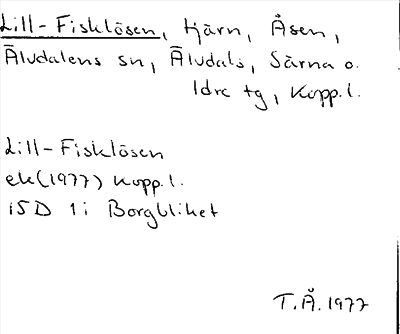 Lill-Fisklösen, tjärn, Åsen,
Älvdalens sn, Älvdals, Särna o.
Idre tg, Kopp.l.
Lill-Fisklösen
ek(1977) Kopp.l.
15D 1i Borgbliket
T.Å. 1977